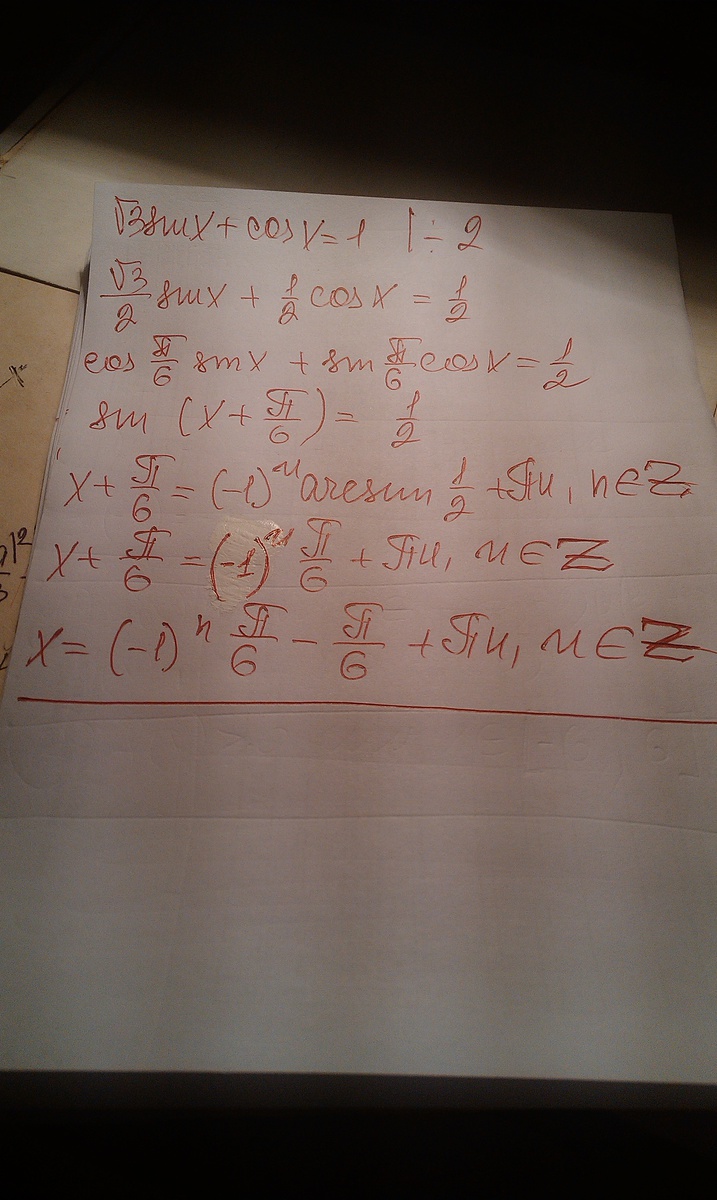 √3 sin x + cos x = 1 | ÷ 2
√3/2 sin x + 1/2 cos x = 1/2
cos π/6 sin x + sin π/6 cos x = 1/2
sin (x + π/6) = 1/2
x + π/6 = (-1)ⁿ arcsin 1/2 + πn, n ∈ Z
x + π/6 = (-1)ⁿ π/6 + πn, n ∈ Z
x = (-1)ⁿ π/6 - π/6 + πn, n ∈ Z